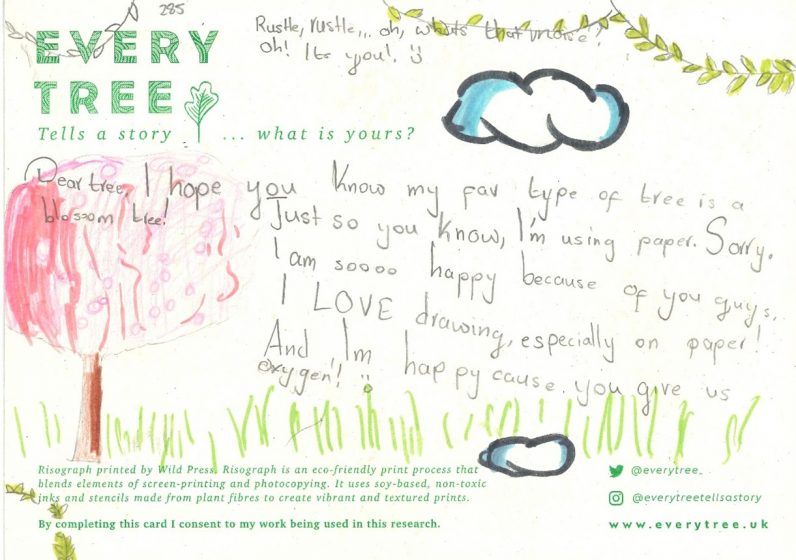 285
Rustle, rustle... oh, whats that noise?
oh! Its you!
EVERY
TREE
Tells a story ... what is yours?
Dear tree, I hope you know my fav type of tree is a
blossom tree!
Just so you know, I'm using paper. Sorry.
I am soooo happy because of you guys.
I LOVE drawing, especially on paper!
And I'm happy cause you give us
oxygen!!
Risograph printed by Wild Press. Risograph is an eco-friendly print process that
blends elements of screen-printing and photocopying. It uses soy-based, non-toxic
inks and stencils made from plant fibres to create vibrant and textured prints.
By completing this card I consent to my work being used in this research.
@everytree_
@everytreetellsastory
www.everytree.uk